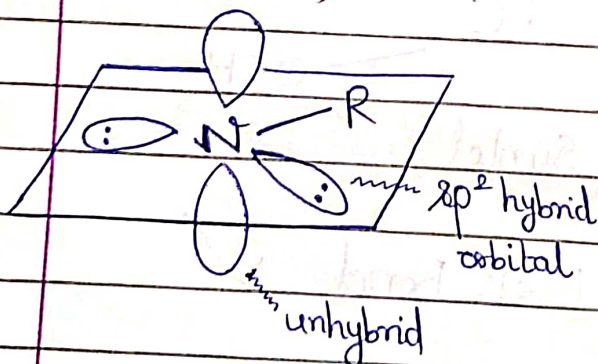 N R
sp² hybrid
orbital
unhybrid